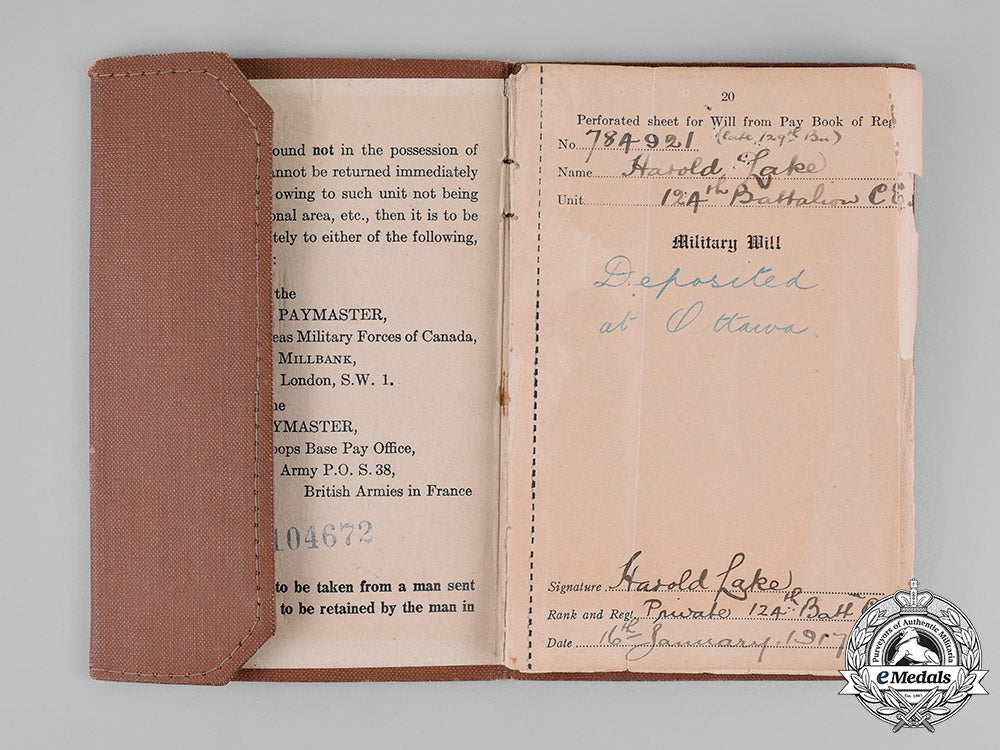 ound not in the possession of
annot be returned immediately
owing to such unit not being
onal area, etc., then it is to be
tely to either of the following,
:
the
PAYMASTER,
eas Military Forces of Canada,
MILLBANK,
London, S.W. 1.
he
YMASTER,
oops Base Pay Office,
Army P.O. S. 38,
British Armies in France
104672
to be taken from a man sent
to be retained by the man in
20
Perforated sheet for Will from Pay Book of Reg
No. 784921 (late 129th Bn)
Name Harold Lake
Unit 124th Battalion C.E.
Military Will
Deposited
at Ottawa
Signature Harold Lake
Rank and Regt. Private 124th Battn
Date 16th January, 1917
Purveyors of Authentic Militaria
eMedals